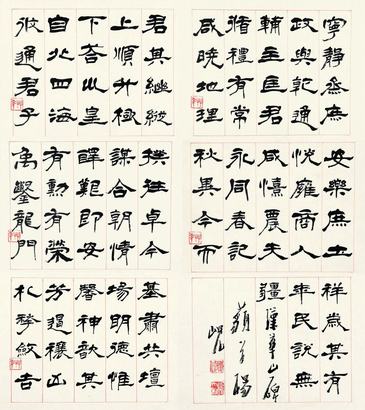 寧靜烝庶
政與乾通
輔主匡君
循禮有常
咸曉地理
君其繼縱
上順斗極
下荅巛皇
自北四海
攸通君子
安樂庶士
悅雍商人
咸憘農夫
永同春記
秋異今而
揆往卓今
謀合朝情
醳艱即安
有勳有榮
禹鑿龍門
祥歲其有
年民說無
疆漢華山碑
基肅共壇
場明德惟
馨神歆其
芳遏禳凶
札揫斂吉